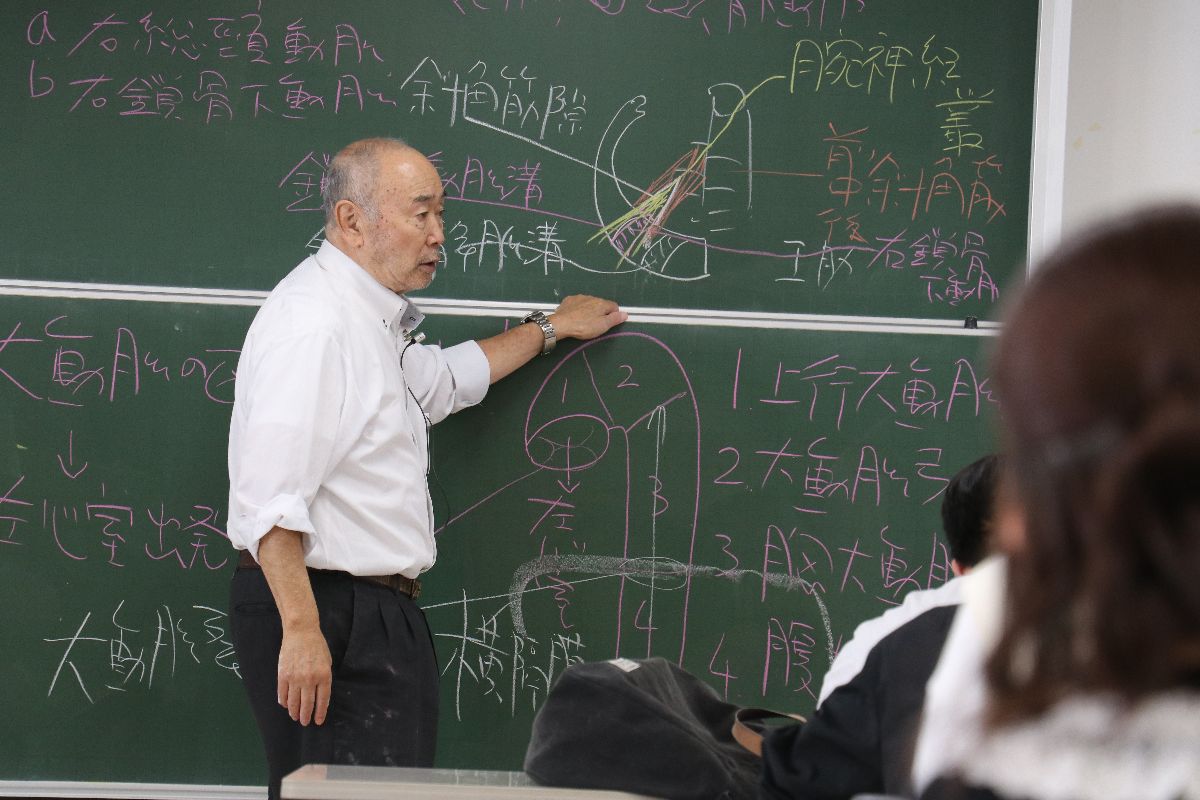 a 右総頸動脈
b 右鎖骨下動脈
斜角筋隙
腕神経
叢
前斜角筋
鎖 動脈溝
後
脈溝
右鎖骨
下動脈
大動脈の
1
2
1. 上行大動脈
2. 大動脈弓
↓
左心室出発
左
3
3. 胸大動脈
室
大動脈
横隔膜
4
4. 腹